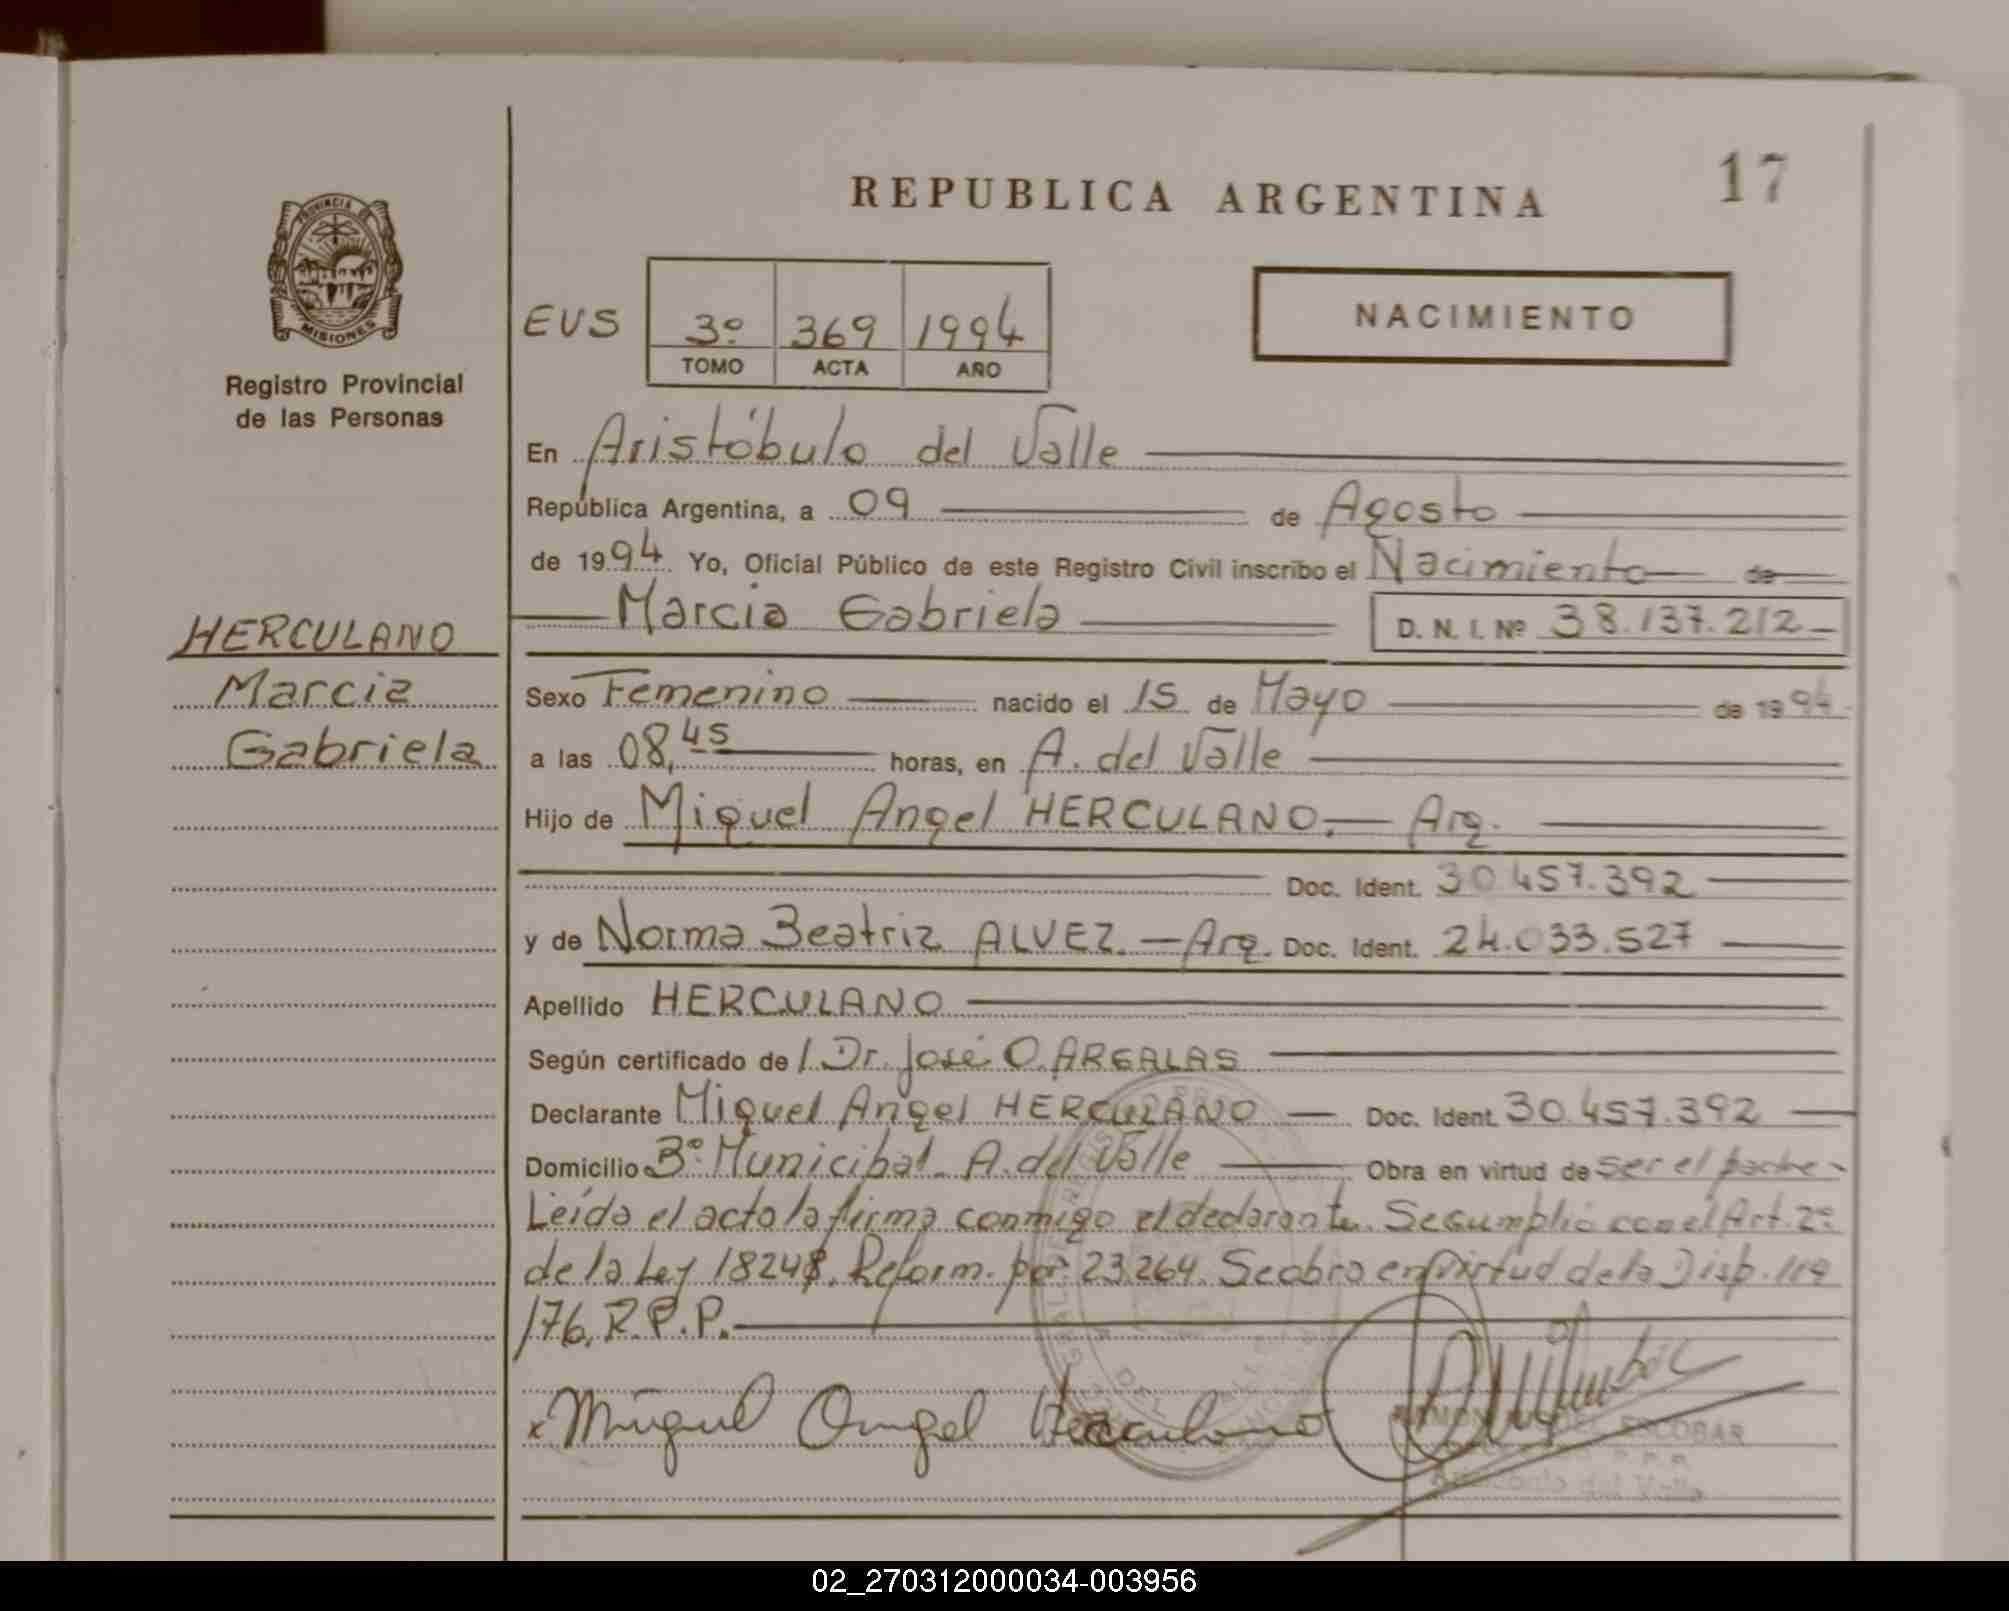 REPUBLICA ARGENTINA
17
PROVINCIA DE
MISIONES
Registro Provincial
de las Personas
EVS
3º 369 1994
TOMO ACTA AÑO
NACIMIENTO
En Aristóbulo del Valle
República Argentina, a 09 de Agosto
de 1994 Yo, Oficial Público de este Registro Civil inscribo el Nacimiento de
Marcia Gabriela D. N. I. Nº 38.137.212
HERCULANO
Marcia
Gabriela
Sexo Femenino nacido el 15 de Mayo de 1994
a las 08,45 horas, en A. del Valle
Hijo de Miguel Angel HERCULANO. Arg.
Doc. Ident. 30.457.392
y de Norma Beatriz ALVEZ. Arg. Doc. Ident. 24.033.527
Apellido HERCULANO
Según certificado de l Dr. José O. ARGALAS
Declarante Miguel Angel HERCULANO Doc. Ident. 30.457.392
Domicilio Bº Municibal A. del Valle Obra en virtud de ser el padre
Leída el acta la firma conmigo el declarante. Se cumplió con el Art. 2º
de la Ley 18248. Reform. por 23.264. Se obra en virtud de la Disp. 119
/76. R.P.P.
x Miguel Angel Herculano
ESCOBAR
del Valle
02_270312000034-003956